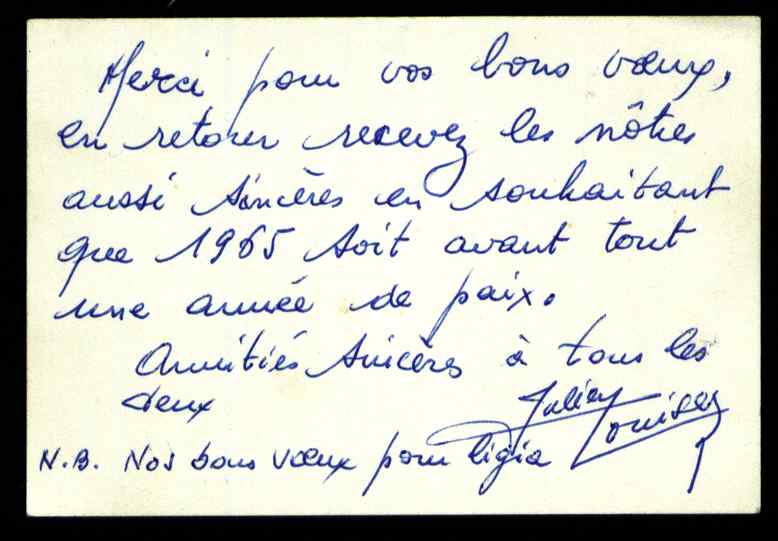 Merci pour vos bons vœux,
en retour recevez les nôtres
aussi sincères en souhaitant
que 1965 soit avant tout
une année de paix.
Amitiés sincères à tous les
deux
Julien Louise
N.B. Nos bons vœux pour Ligia